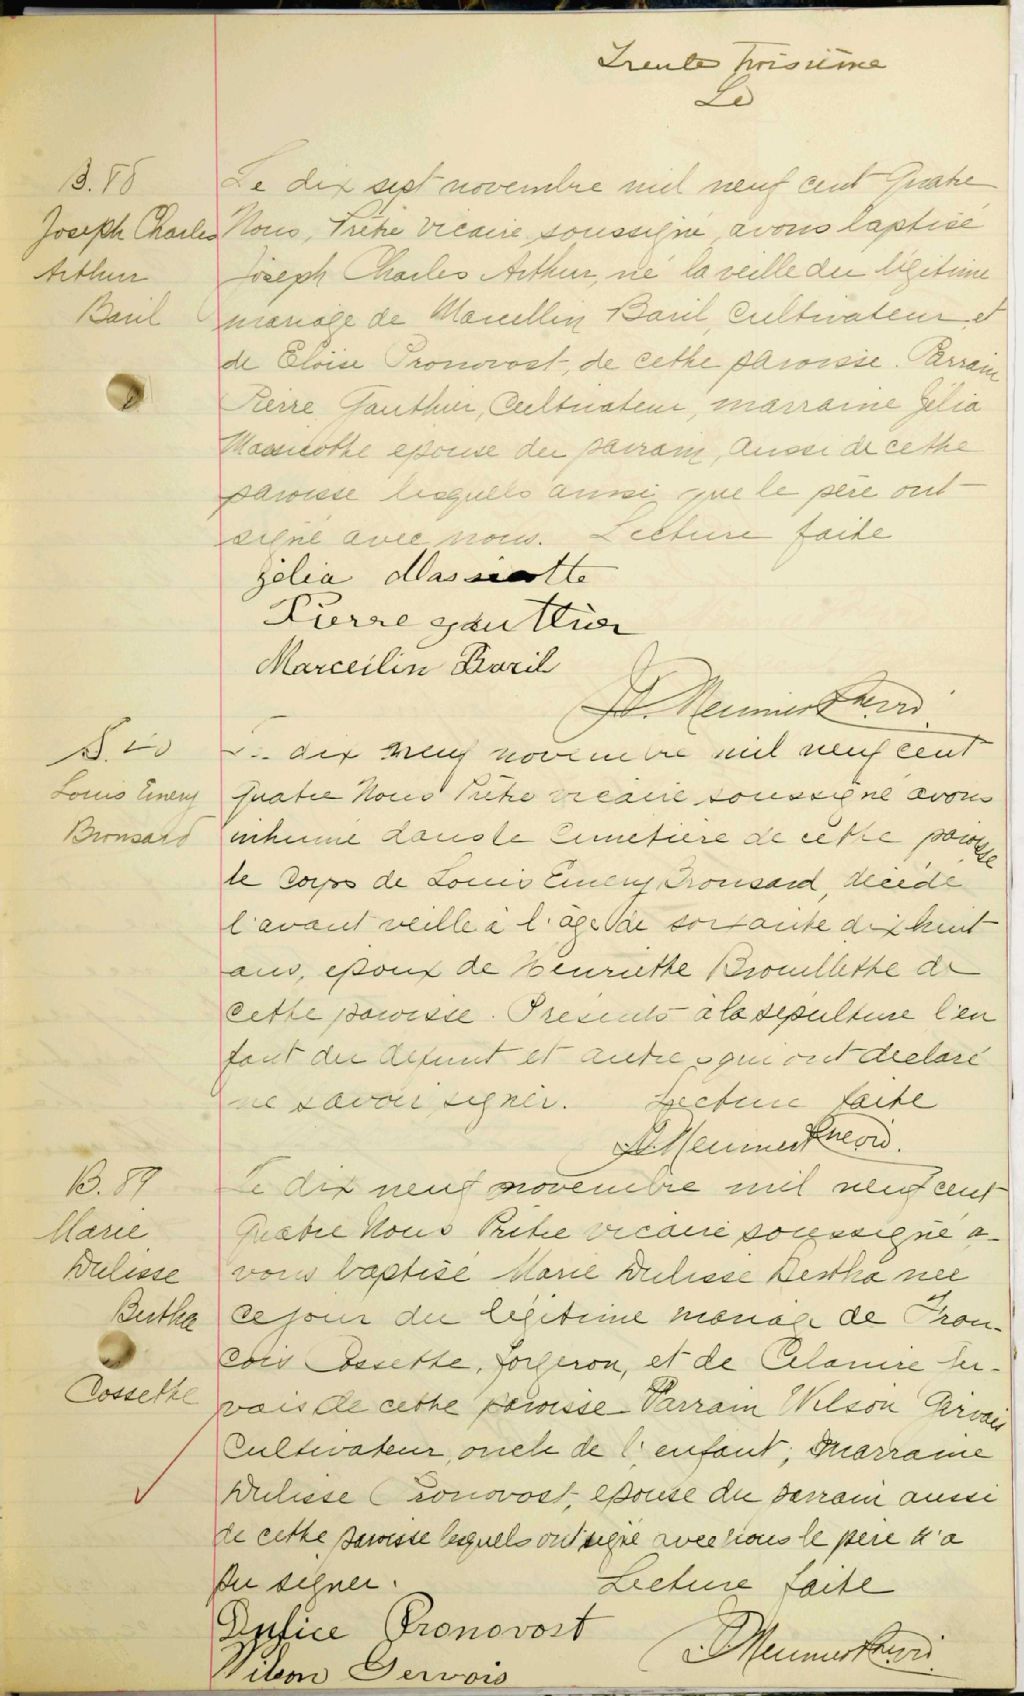 Trente troisième
Le
B. 88
Joseph Charles
Arthur
Baril
Le dix sept novembre mil neuf cent Quatre
Nous, Prêtre vicaire soussigné, avons baptisé
Joseph Charles Arthur, né la veille du légitime
mariage de Marcellin Baril, cultivateur et
de Eloise Pronovost, de cette paroisse. Parrain
Pierre Gauthier, Cultivateur, marraine Zélia
Massicotte epouse du parrain, aussi de cette
paroisse lesquels ainsi que le père ont
signé avec nous. Lecture faite
Zélia Massicotte
Pierre gauthier
Marceilin Baril
J. Meunier Ptre vic.
S. 40
Louis Emery
Bronsard
Le dix neuf novembre mil neuf cent
quatre Nous Prêtre vicaire soussigné avons
inhumé dans le cimetière de cette paroisse
le corps de Louis Emery Bronsard, décédé
l'avant veille à l'âge de soixante dix huit
ans, epoux de Henriette Brouillette de
cette paroisse. Présents à la sépulture l'en
fant du defunt et autres qui ont declaré
ne savoir signer. Lecture faite
J. Meunier Ptre vic.
B. 89
Marie
Dulisse
Bertha
Cossette
Le dix neuf novembre mil neuf cent
Quatre Nous Prêtre vicaire soussigné a-
vons baptisé Marie Dulisse Bertha née
ce jour du légitime mariage de Fran-
cois Cossette, forgeron, et de Célanire Ger-
vais de cette paroisse Parrain Wilson Gervais
Cultivateur, oncle de l'enfant; marraine
Dulisse Pronovost, epouse du parrain aussi
de cette paroisse lesquels ont signé avec nous le père n'a
pu signer. Lecture faite
Dulice Pronovost
Wilson Gervois
J. Meunier Ptre vic.